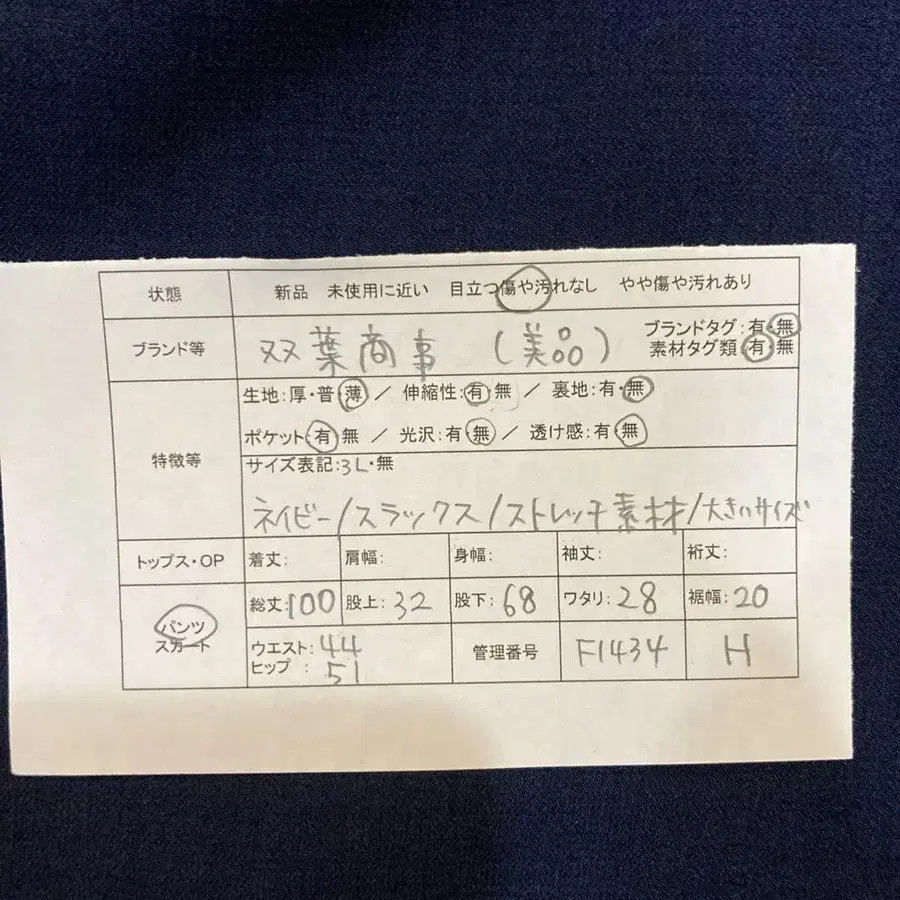 状態 新品 未使用に近い 目立つ傷や汚れなし やや傷や汚れあり
ブランド等 双葉商事 (美品) ブランドタグ:有・無
素材タグ類:有・無
特徴等 生地:厚・普・薄 / 伸縮性:有・無 / 裏地:有・無
ポケット:有・無 / 光沢:有・無 / 透け感:有・無
サイズ表記:3L・無
ネイビー/スラックス/ストレッチ素材/大きいサイズ
トップス・OP 着丈: 肩幅: 身幅: 袖丈: 裄丈:
パンツ 総丈:100 股上:32 股下:68 ワタリ:28 裾幅:20
スカート
ウエスト:44 管理番号 F1434 H
ヒップ:51